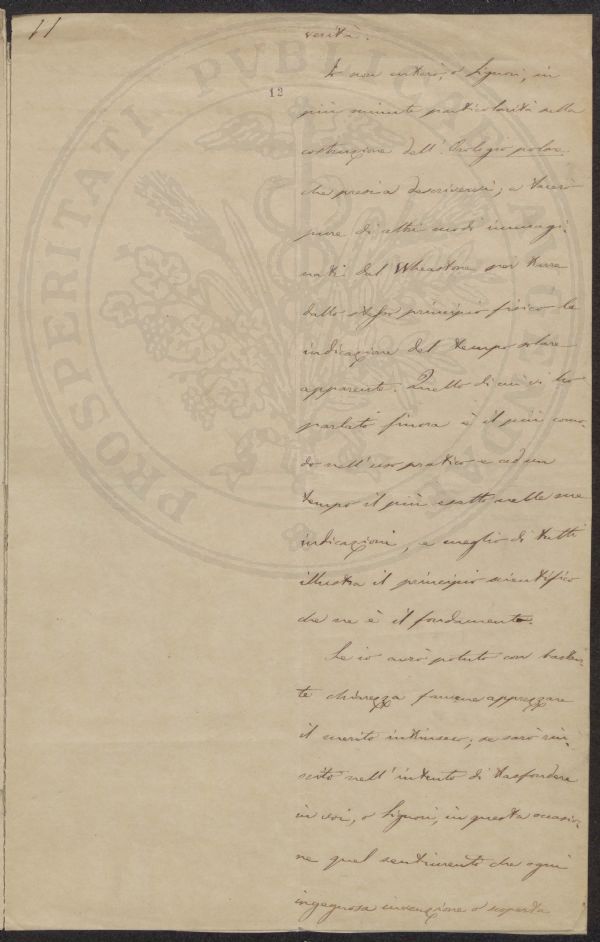 11
12
verità.
Io non entrerò, o Signori, in
più minute particolarità sulla
costruzione dell'Orologio polare
che presi a descrivervi; e tacerò
pure di altri modi immagi-
nati dal Wheastone per trarre
dallo stesso principio fisico la
indicazione del tempo solare
apparente. Quello di cui vi ho
parlato finora è il più como-
do nell'uso pratico e ad un
tempo il più esatto nelle sue
indicazioni, e meglio di tutti
illustra il principio scientifico
che ne è il fondamento.
Se io avrò potuto con bastan-
te chiarezza farvene apprezzare
il merito intrinseco; se sarò riu-
scito nell'intento di trasfondere
in voi, o Signori, in questa occasio-
ne quel sentimento che ogni
ingegnosa invenzione o scoperta
PROSPERITATI PVBLICAE AVGENDAE